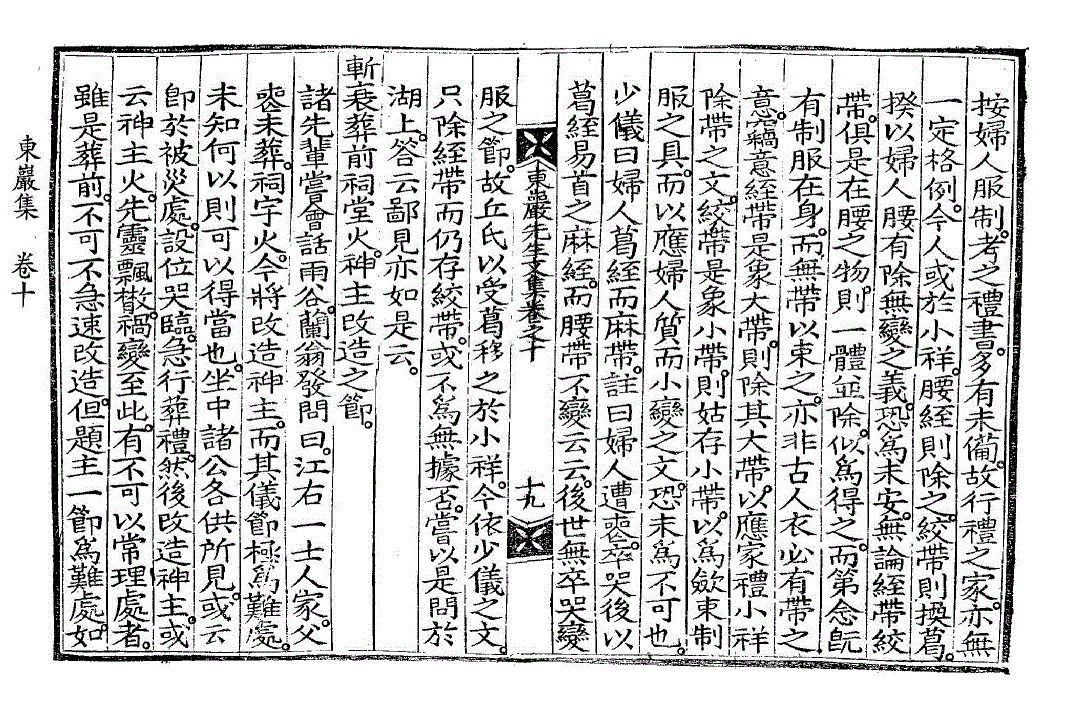 按婦人服制。考之禮書。多有未備。故行禮之家。亦無
一定格例。今人或於小祥。腰絰則除之。絞帶則換葛。
揆以婦人腰有除無變之義。恐爲未安。無論絰帶絞
帶。俱是在腰之物。則一體並除。似爲得之。而第念旣
有制服在身。而無帶以束之。亦非古人衣必有帶之
意。竊意絰帶是象大帶。則除其大帶。以應家禮小祥
除帶之文。絞帶是象小帶。則姑存小帶。以爲斂束制
服之具。而以應婦人質而小變之文。恐未爲不可也。
少儀曰婦人葛絰而麻帶。註曰婦人遭喪。卒哭後以
葛絰易首之麻絰。而腰帶不變云云。後世無卒哭變
東巖先生文集卷之十 十九
服之節。故丘氏以受葛移之於小祥。今依少儀之文。
只除絰帶而仍存絞帶。或不爲無據否。嘗以是問於
湖上。答云鄙見亦如是云。
斬衰葬前祠堂火。神主改造之節。
諸先輩嘗會話雨谷。蘭翁發問曰。江右一士人家。父
喪未葬。祠宇火。今將改造神主。而其儀節極爲難處。
未知何以則可以得當也。坐中諸公各供所見。或云
卽於被災處。設位哭臨。急行葬禮。然後改造神主。或
云神主火。先靈飄散。禍變至此。有不可以常理處者。
雖是葬前。不可不急速改造。但題主一節爲難處。如
東巖集 卷十